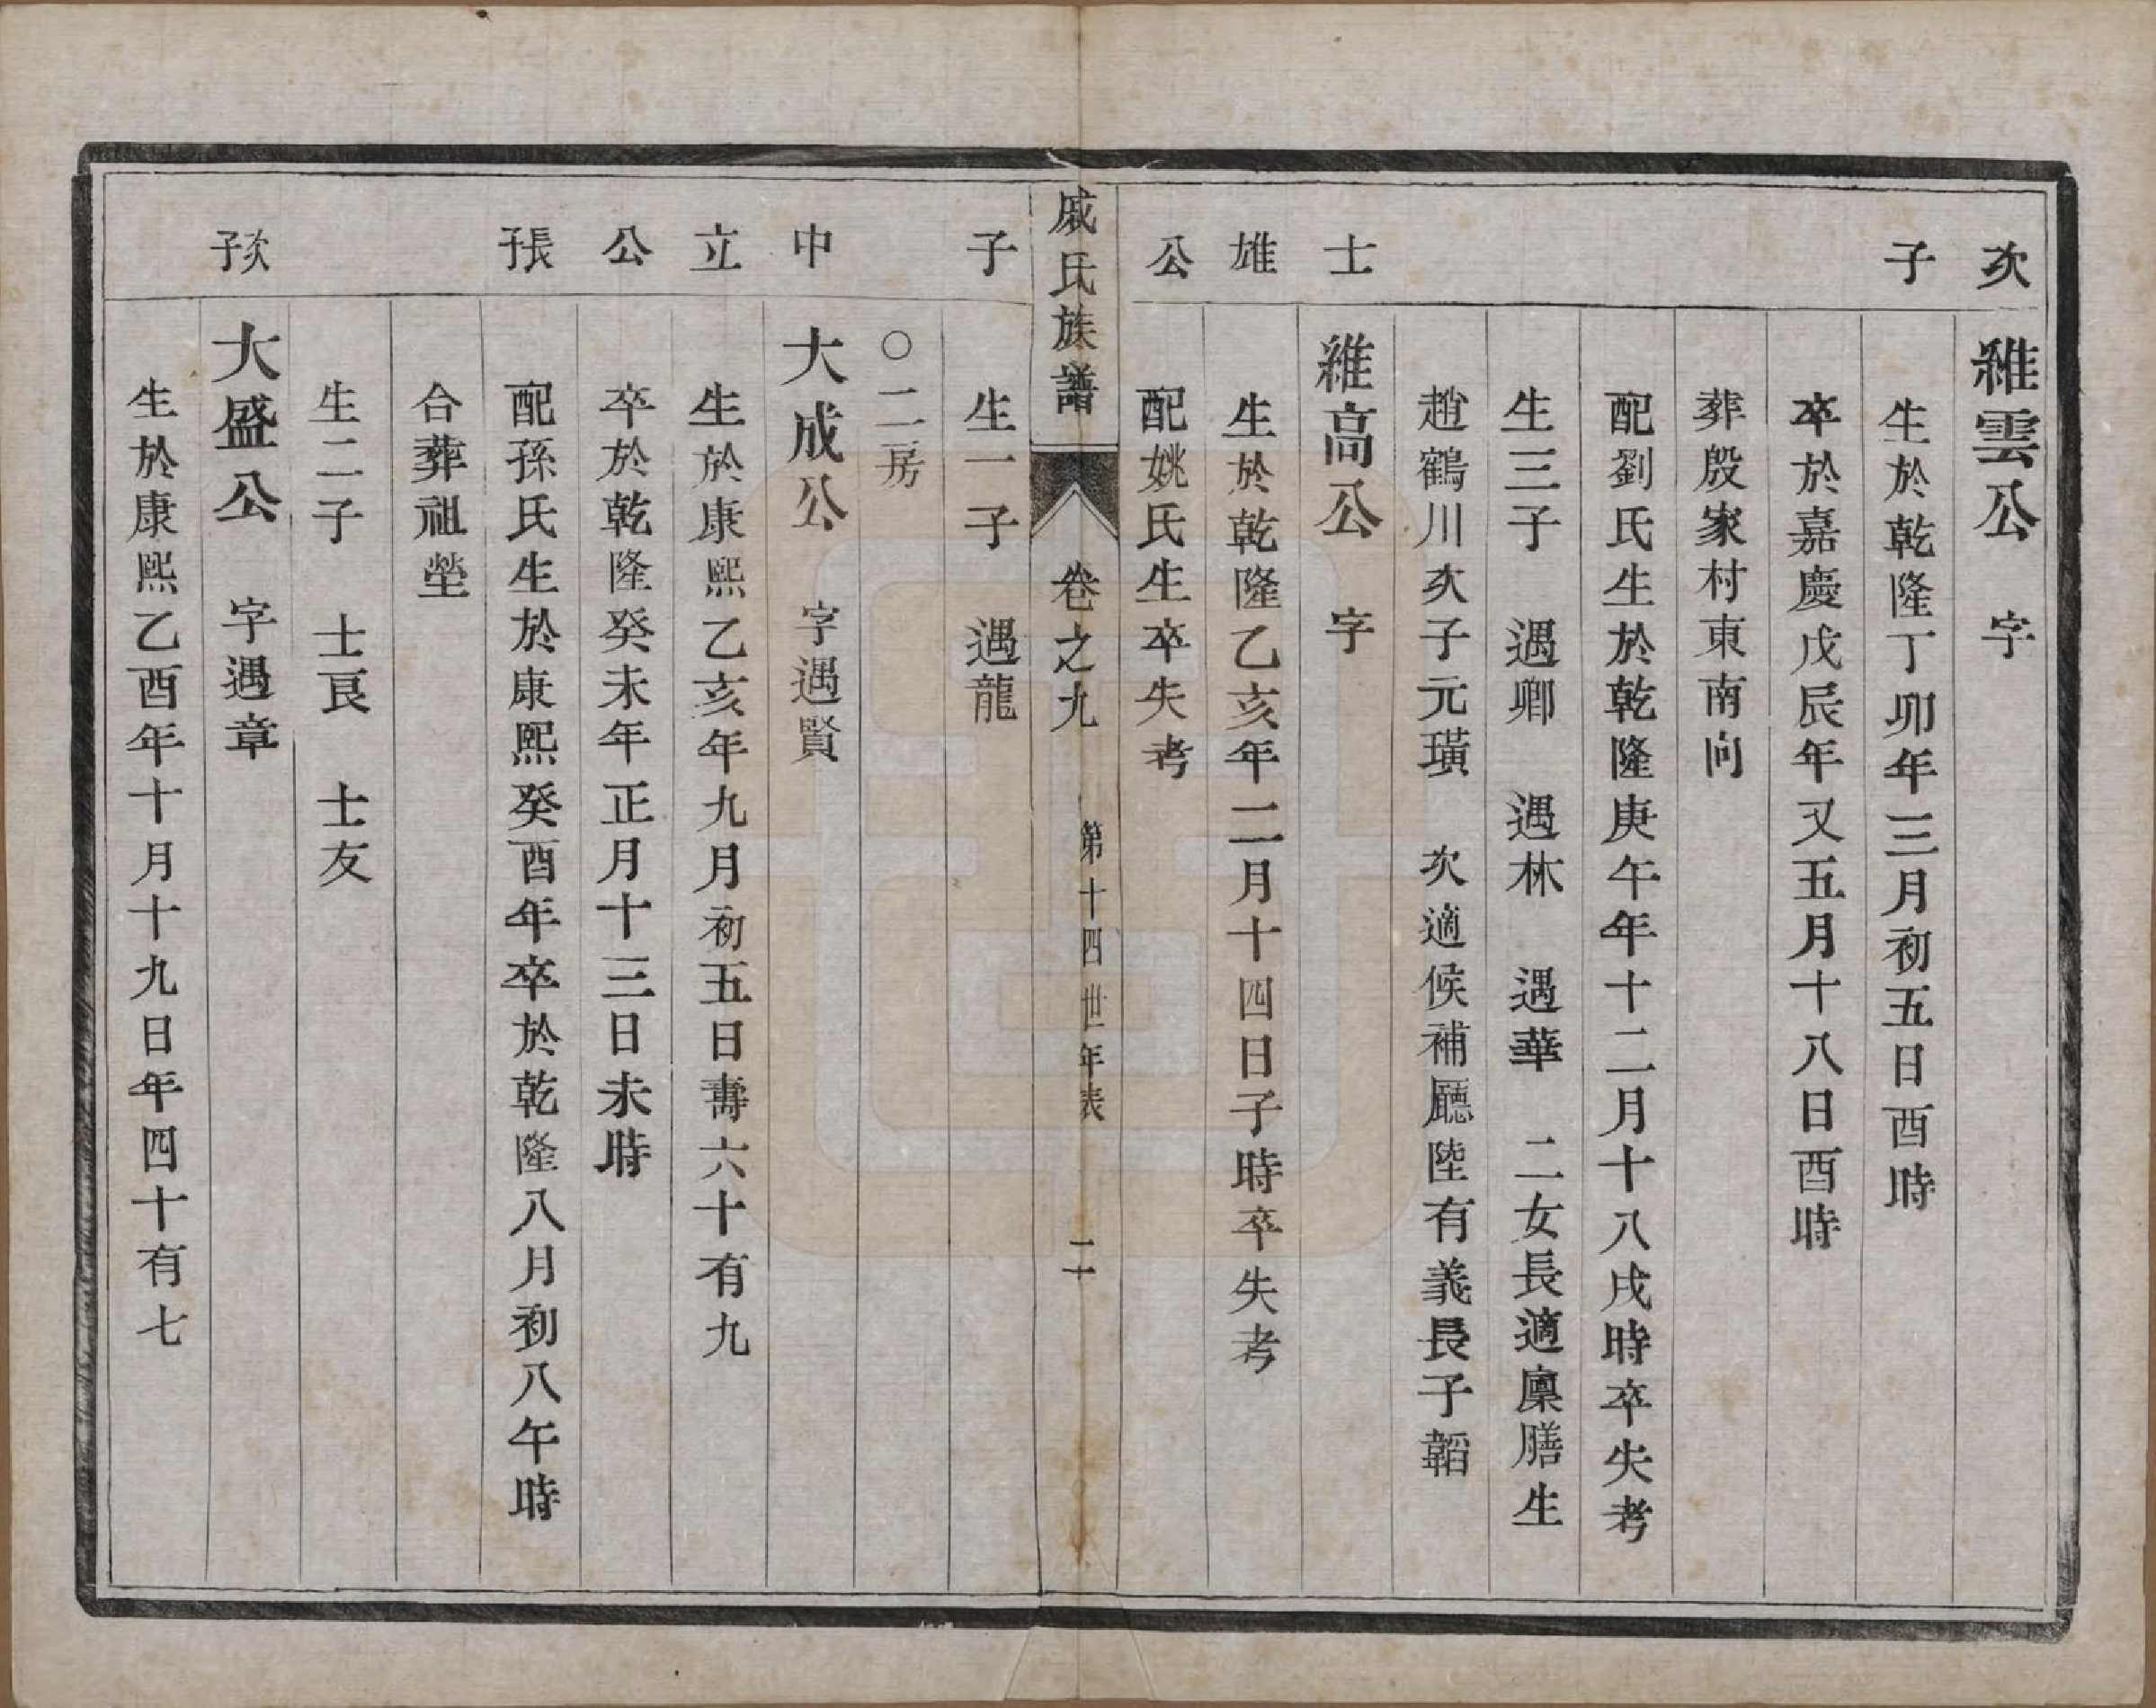 次子
維雲公　字
生於乾隆丁卯年三月初五日酉時
卒於嘉慶戊辰年又五月十八日酉時
葬殷家村東南向
配劉氏生於乾隆庚午年十二月十八戌時卒失考
生三子　遇卿　遇林　遇華　二女長適廩膳生
趙鶴川次子元璜　次適候補廳陸有義長子韜
士雄公
維高公　字
生於乾隆乙亥年二月十四日子時卒失考
配姚氏生卒失考
戚氏族譜　卷之九　第十四世年表　二
子
生一子　遇龍
○二房
中立公
大成公　字遇賢
生於康熙乙亥年九月初五日壽六十有九
卒於乾隆癸未年正月十三日未時
張子
配孫氏生於康熙癸酉年卒於乾隆八月初八午時
合葬祖塋
生二子　士良　士友
次子
大盛公　字遇章
生於康熙乙酉年十月十九日年四十有七